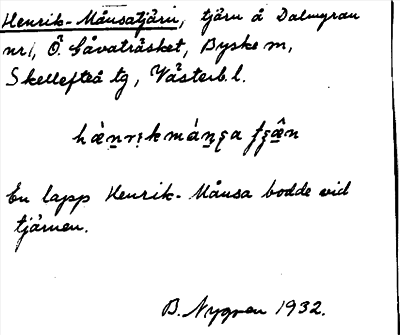 Henrik-Månsatjärn, tjärn å Dalmyran
nr1, Ö. Såvaträsket, Byske sn,
Skellefteå tg, Västerb.l.
En lapp Henrik-Månsa bodde vid
tjärnen.
B. Nygren 1932.